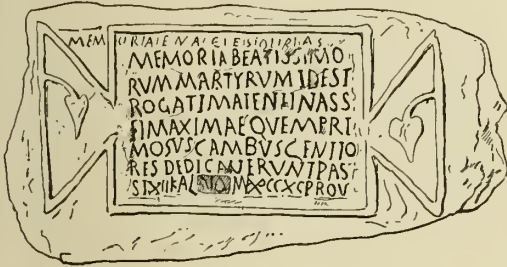 MEMORIABEATISSIMO
RVMMARTYRVMIDEST
ROGATIMATENTINASS
EIMAXIMAEQVEMPRI
MOSVSCAMBVSGENITO
RESDEDICAVERVNTPAS
SIXIIKAL CCXCPROV